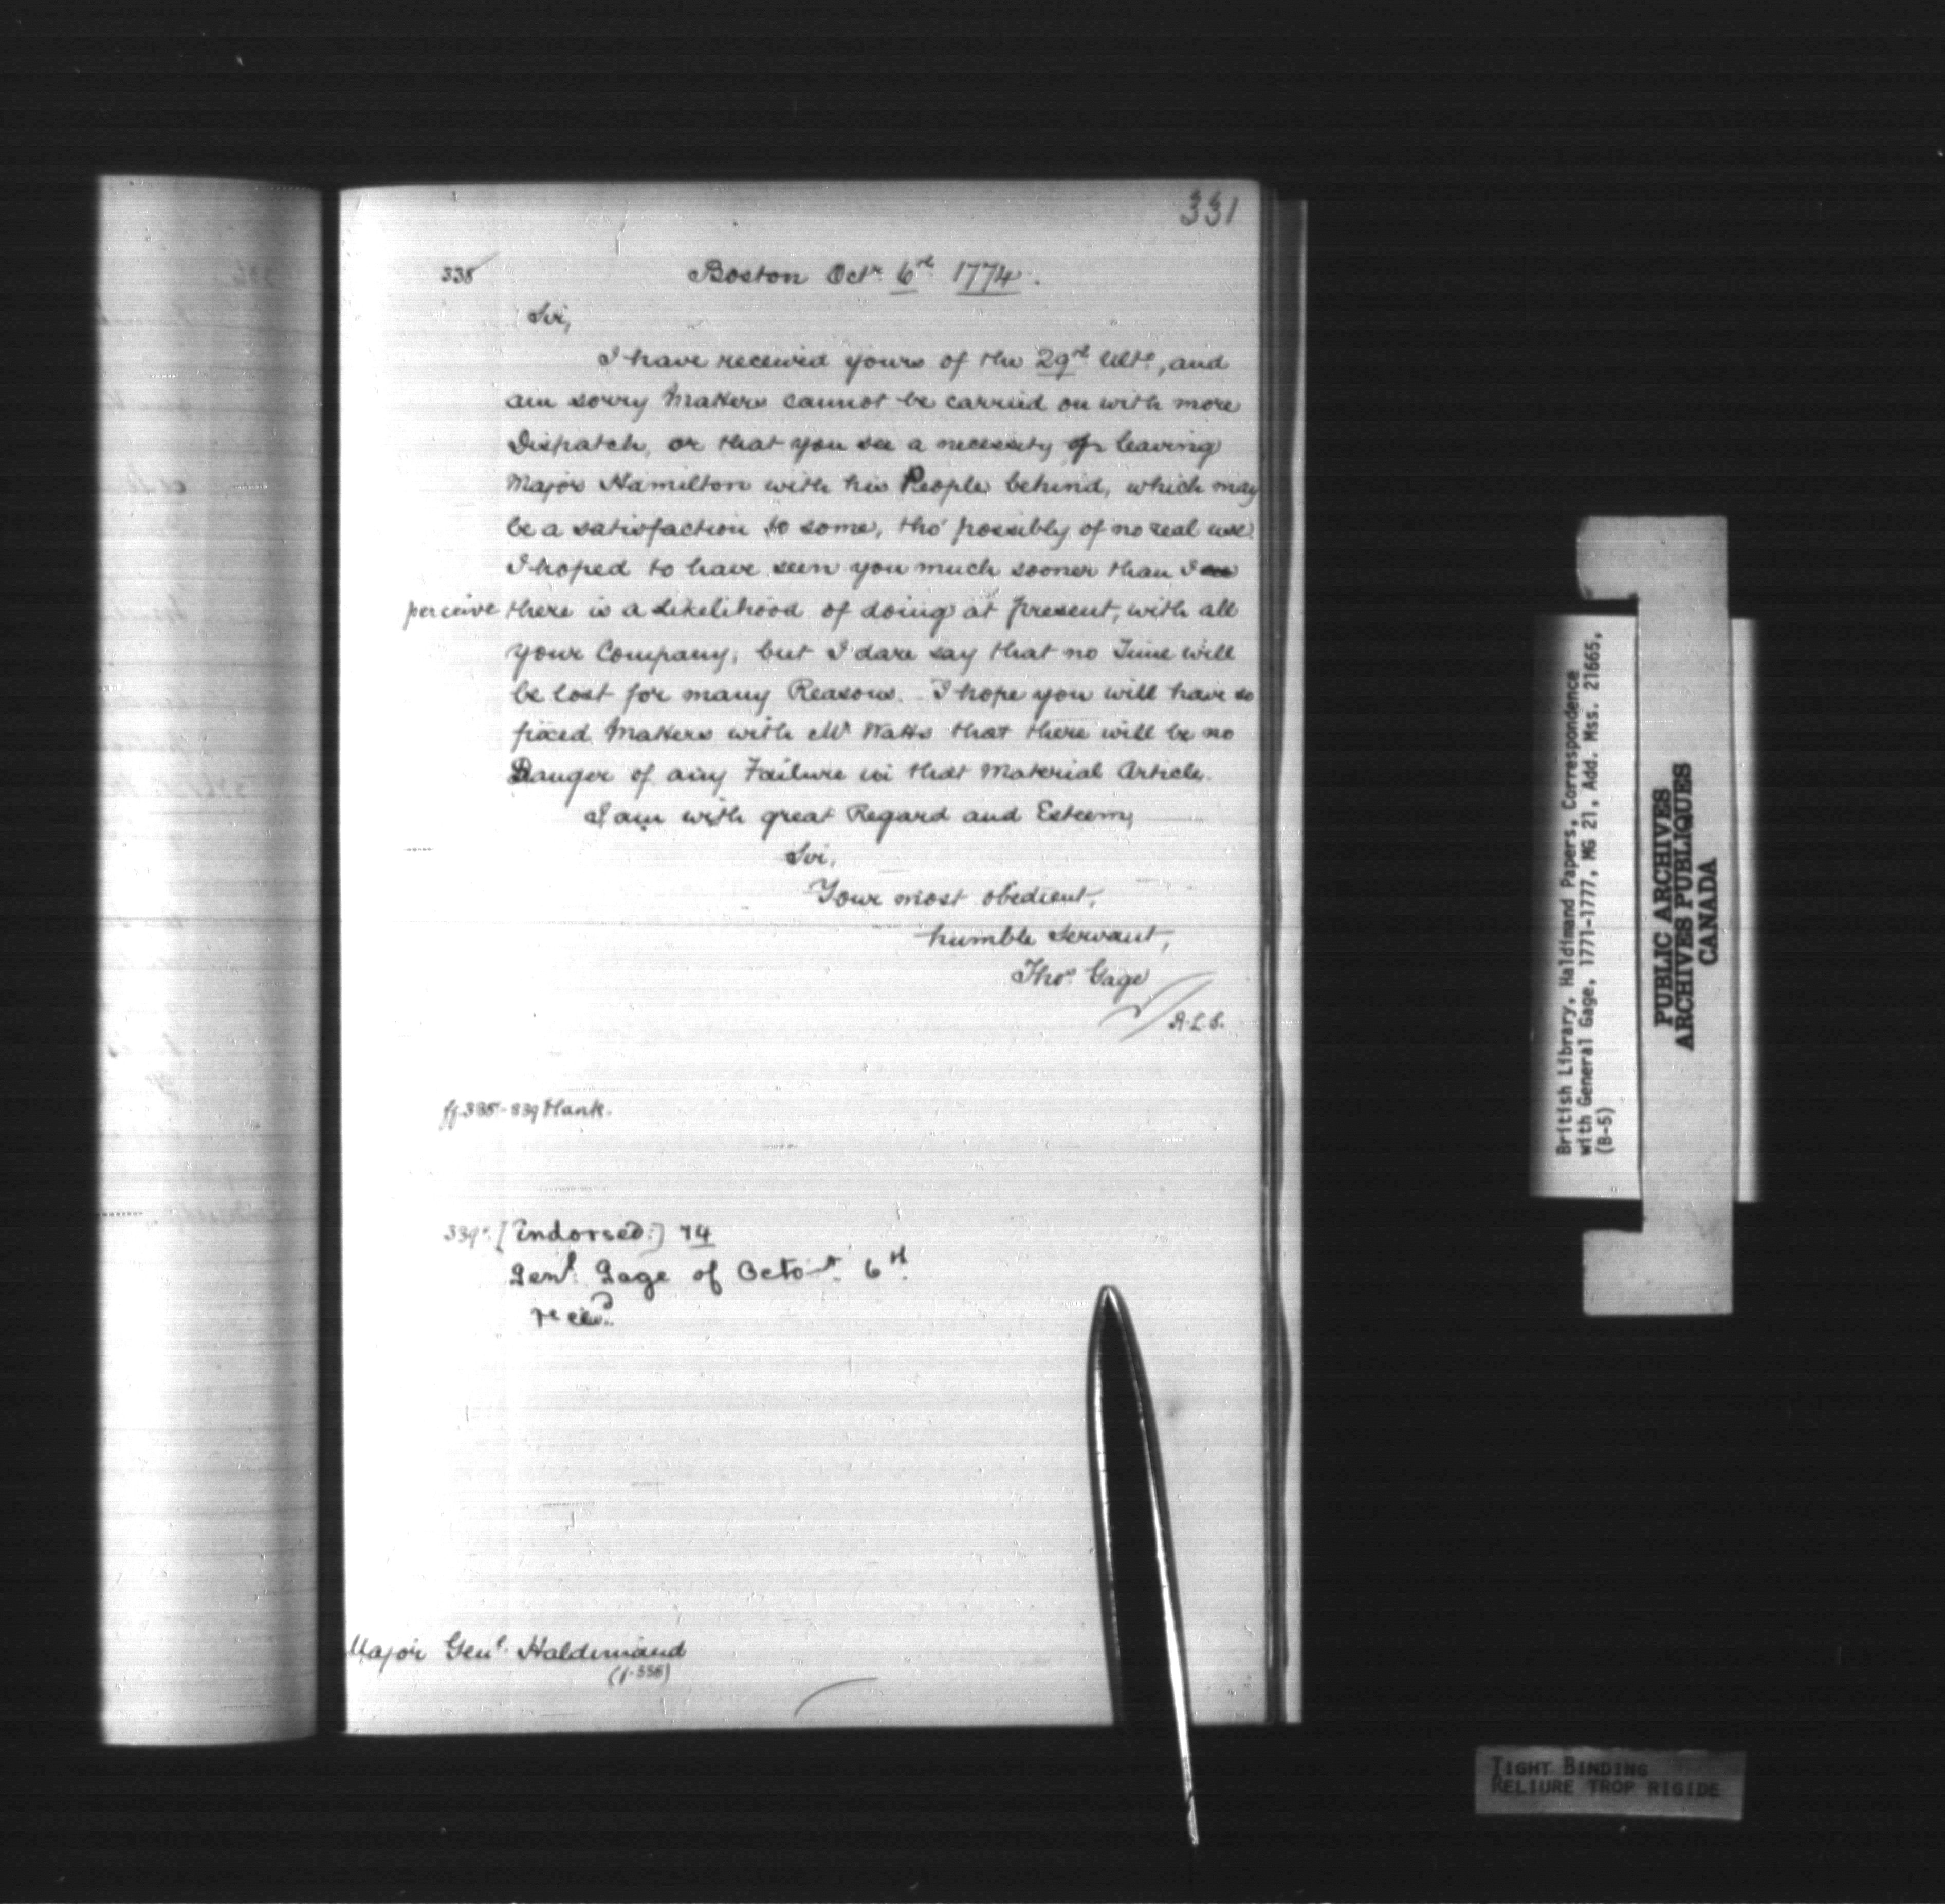 331
338
Boston Octr. 6th. 1774.
Sir,
I have received yours of the 29th Ulto, and
am sorry Matters cannot be carried on with more
Dispatch, or that you see a necessity of leaving
Major Hamilton with his People behind, which may
be a satisfaction to some, tho' possibly of no real use.
I hoped to have seen you much sooner than I
perceive there is a Likelihood of doing at present, with all
your Company; but I dare say that no Time will
be lost for many Reasons. I hope you will have so
fixed Matters with Mr Watts that there will be no
Danger of any Failure in that Material Article.
I am with great Regard and Esteem,
Sir,
Your most obedient,
humble Servant,
Thos. Gage
A.L.S.
ff. 338-339 blank.
339v. [Endorsed:] 74
Genl. Gage of Octor. 6th.
recevd.
Major Genl. Haldimand
(f. 338)
British Library, Haldimand Papers, Correspondence
with General Gage, 1771-1777, MG 21, Add. Mss. 21665,
(B-5)
PUBLIC ARCHIVES
ARCHIVES PUBLIQUES
CANADA
TIGHT BINDING
RELIURE TROP RIGIDE